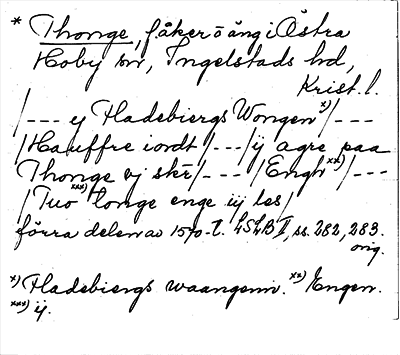 * Thonge, f. åker o äng i Östra
Hoby sn, Ingelstads hd,
Krist. l.
/--- y Hladebiergs Wongen x)/---
/Hauffre iordt/---/ij agre paa
Thonge vj skr/---/Engh xx)/---
/Tuo xxx) Tonge enge iij les/
förra delen av 1570-t. LSLB II, ss. 282, 283.
orig.
x) Hladebiergs waangenn. xx) Engen.
xxx) ij.